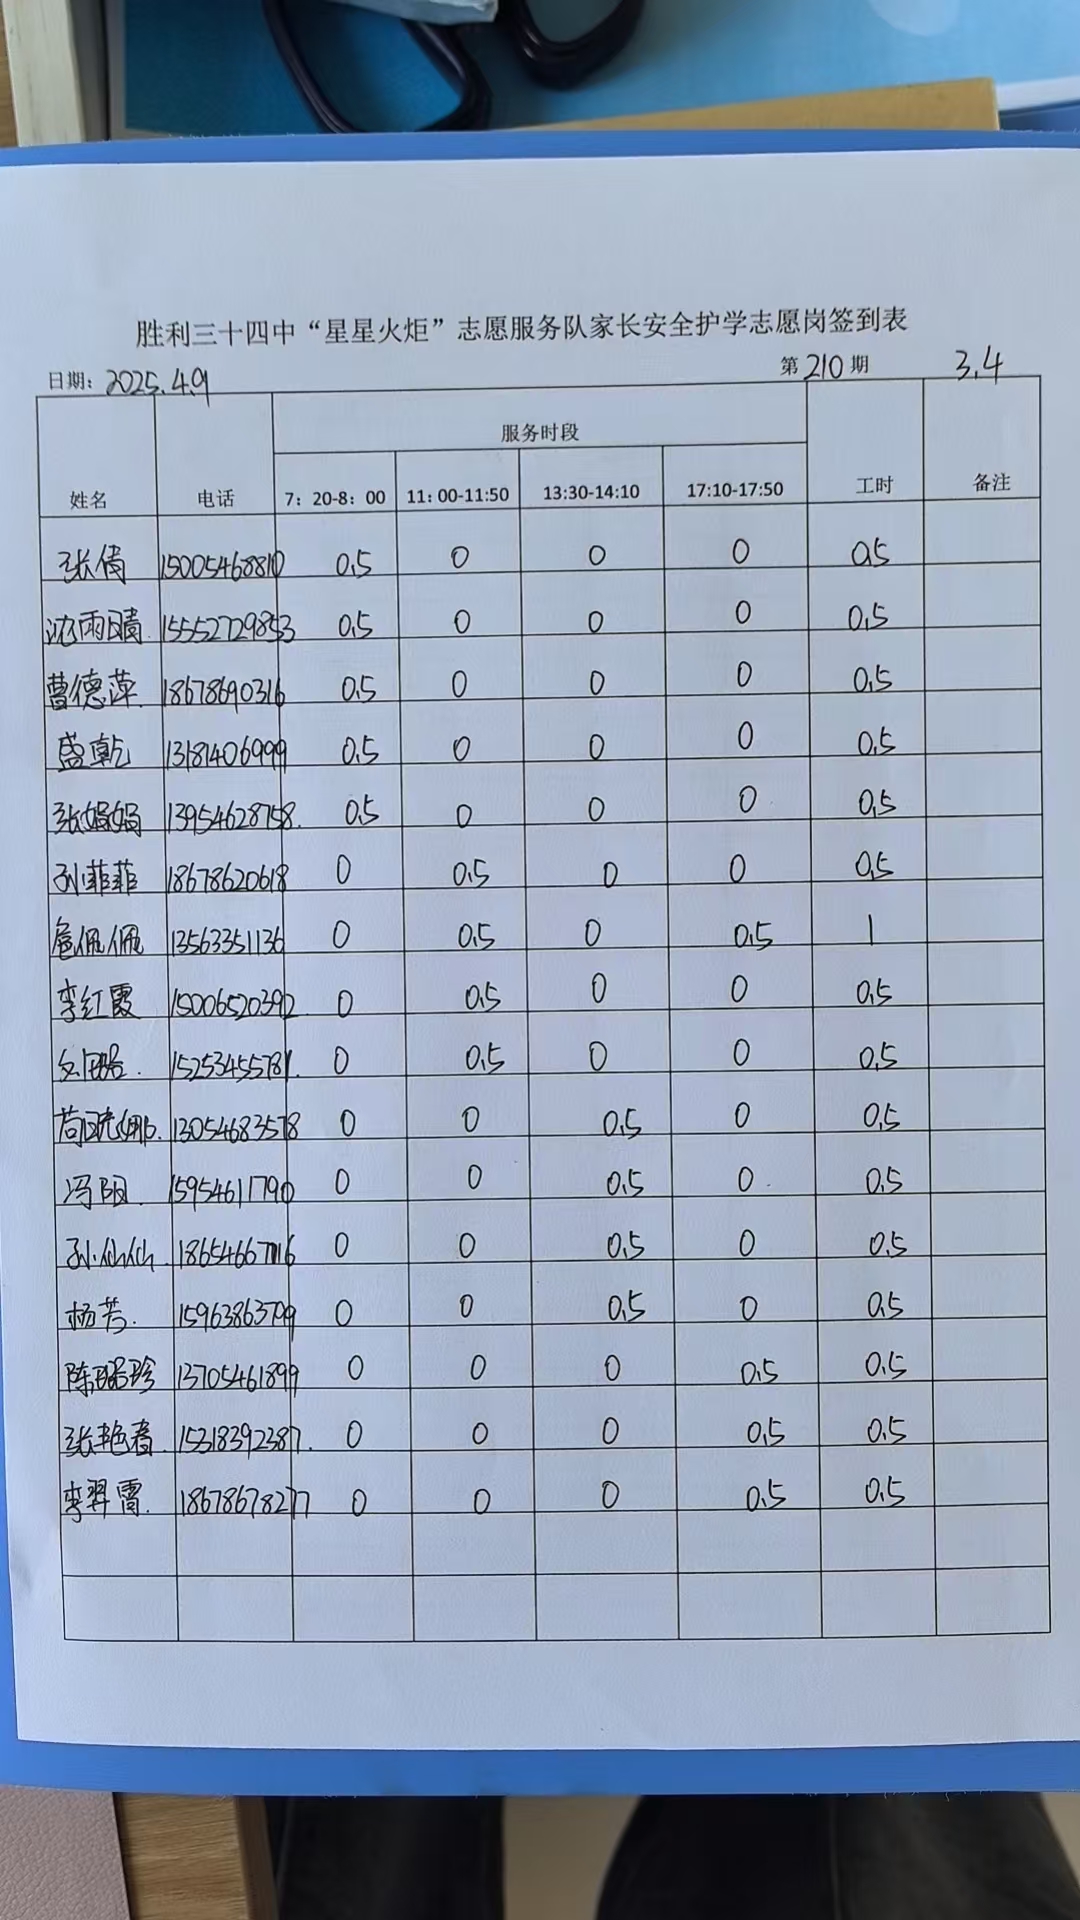 胜利三十四中“星星火炬”志愿服务队家长安全护学志愿岗签到表
日期: 2025.4.9 第210期 3.4
服务时段
姓名 电话 7: 20-8: 00 11: 00-11:50 13:30-14:10 17:10-17:50 工时 备注
张倩 15005468810 0.5 0 0 0 0.5
沈雨晴. 15552729853 0.5 0 0 0 0.5
曹德萍. 18678690316 0.5 0 0 0 0.5
盛乾 13181406999 0.5 0 0 0 0.5
张娟娟 13954628758. 0.5 0 0 0 0.5
孙菲菲 18678620618 0 0.5 0 0 0.5
詹佩佩 13563351136 0 0.5 0 0.5 1
李红霞 15006520392 0 0.5 0 0 0.5
15253455781. 0 0.5 0 0 0.5
13054683578 0 0 0.5 0 0.5
冯阳. 15954611790 0 0 0.5 0 0.5
孙仙仙. 18654667116 0 0 0.5 0 0.5
杨芳. 15963863799 0 0 0.5 0 0.5
陈璐珍 13705461899 0 0 0 0.5 0.5
张艳春. 15318392387. 0 0 0 0.5 0.5
李羿霄. 18678678277 0 0 0 0.5 0.5